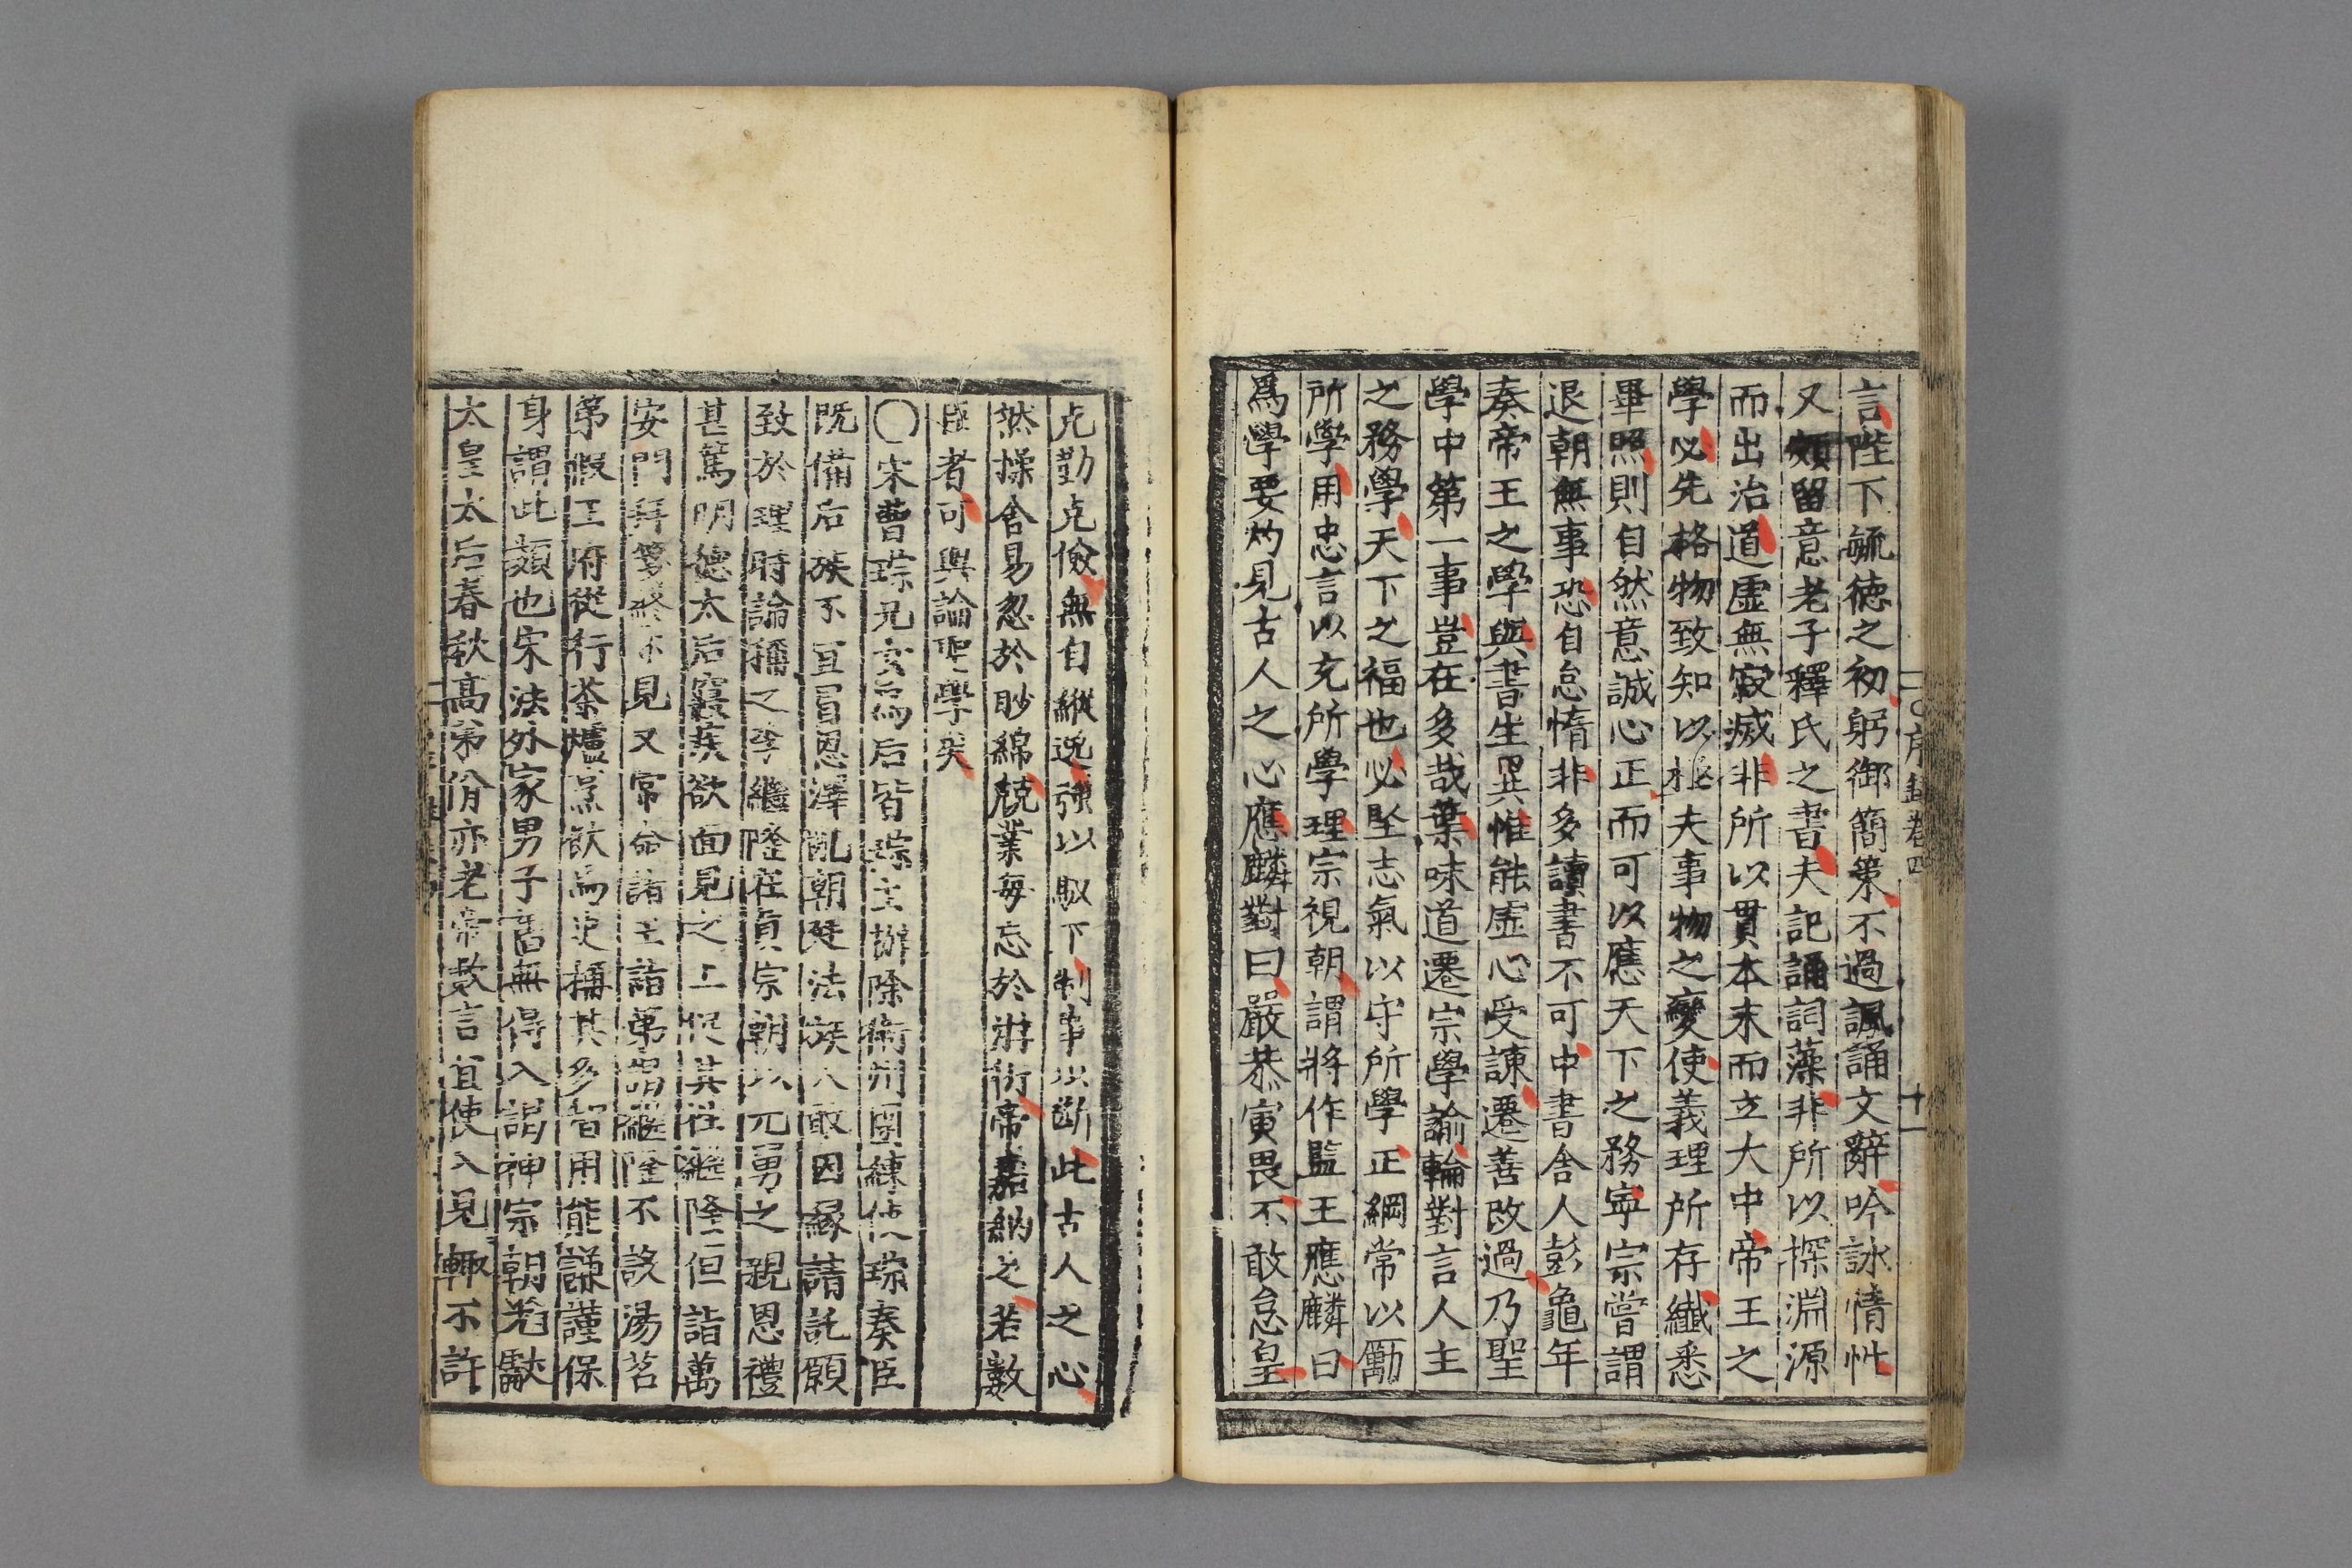 言陛下毓德之初躬御簡策不過諷誦文辭吟詠情性
又頗留意老子釋氏之書夫記誦詞藻非所以探淵源
而出治道虛無寂滅非所以貫本末而立大中帝王之
學必先格物致知以極夫事物之變使義理所存纖悉
畢照則自然意誠心正而可以應天下之務寧宗嘗謂
退朝無事恐自怠惰非多讀書不可中書舍人彭龜年
奏帝王之學與書生異惟能虛心受諫遷善改過乃聖
學中第一事豈在多哉葉味道遷宗學諭輪對言人主
之務學天下之福也必堅志氣以守所學正綱常以勵
所學用忠言以充所學理宗視朝謂將作監王應麟曰
爲學要灼見古人之心應麟對曰嚴恭寅畏不敢怠皇
克勤克儉無自縱逸強以馭下制事以斷此古人之心
然操舍易忽於眇綿兢業每忘於游衍帝嘉納之若數
臣者可與論聖學矣
〇宋曹琮兄女爲后皆琮主辦除衛州團練使琮奏臣
既備后族不宜冒恩澤亂朝廷法族人敢因緣請託願
致於理時論稱之李繼隆在眞宗朝以元舅之親恩禮
甚篤明德太后寢疾欲面見之上促其往繼隆但詣萬
安門拜箋終不見又常命諸王詣第謁繼隆不設湯茗
第假王府從行茶爐烹飲焉史稱其多智用能謙謹保
身謂此類也宋法外家男子舊無得入謁神宗朝光獻
太皇太后春秋高弟佾亦老帝數言宜使入見輒不許
序 卷四
十一